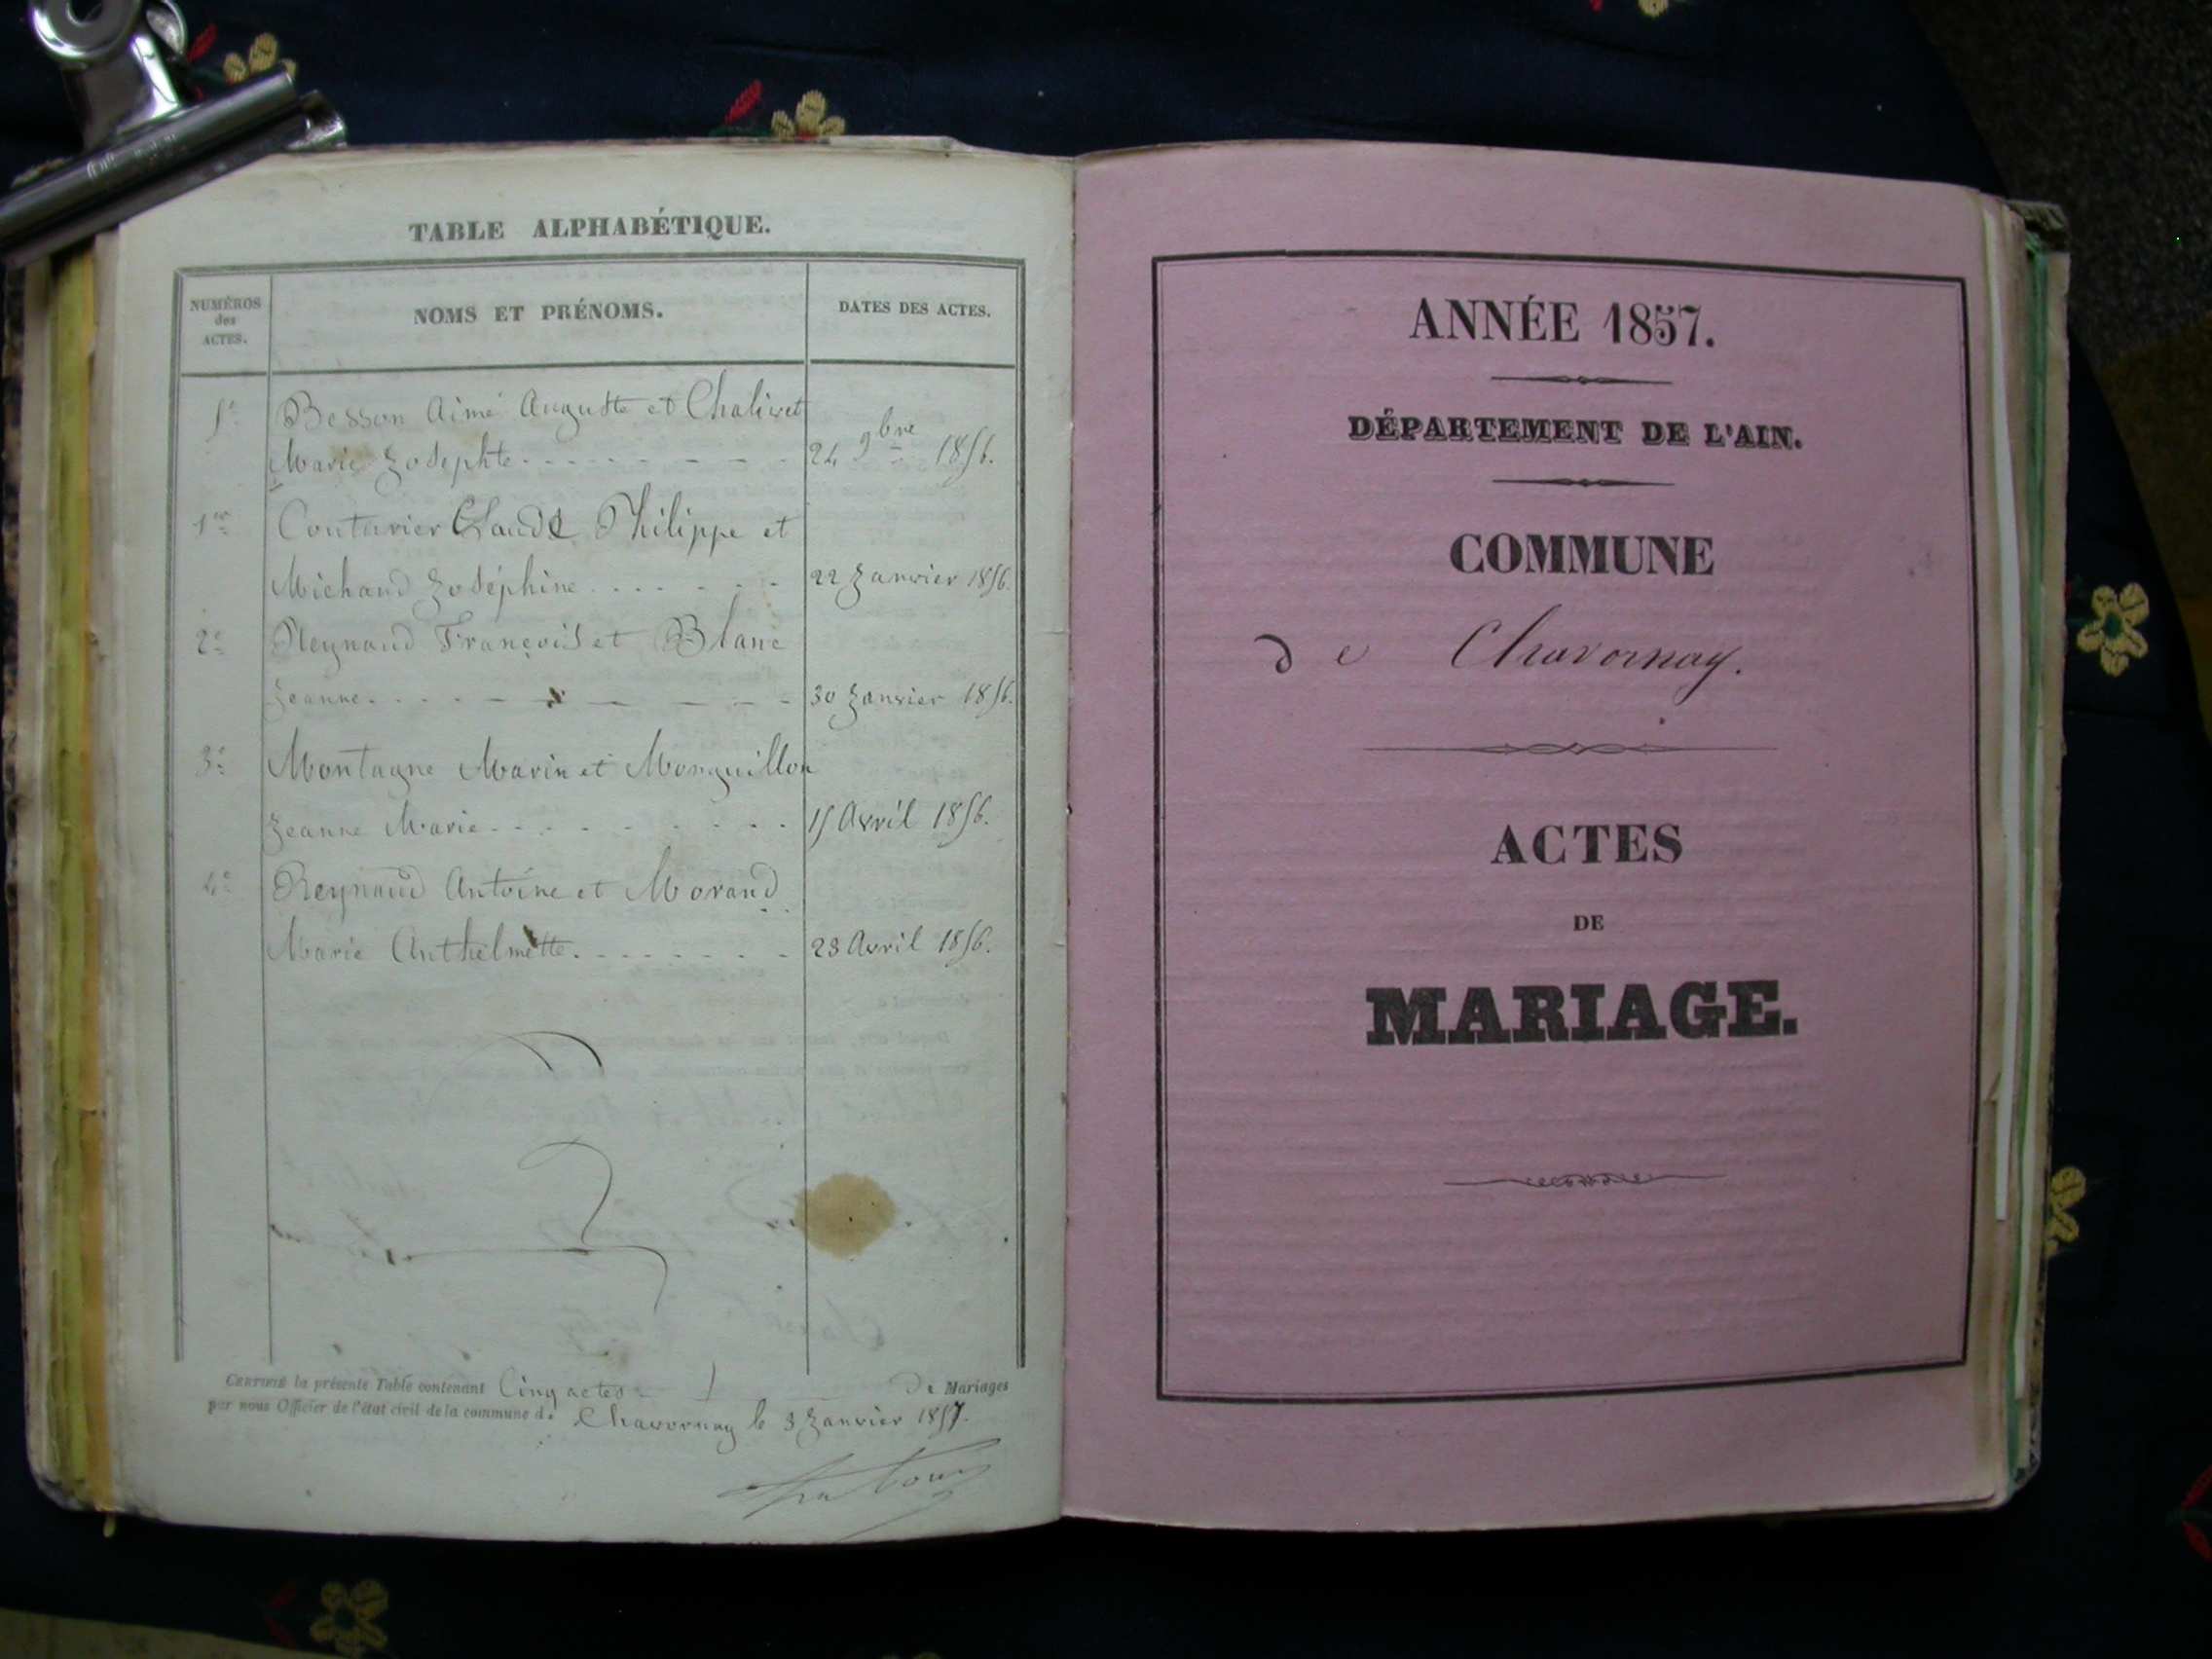 TABLE ALPHABÉTIQUE.
NUMÉROS
des
ACTES.
NOMS ET PRÉNOMS.
DATES DES ACTES.
5e Besson Aimé Auguste et Chalivet
Marie Josephte 24 9bre 1856.
1er Couturier Claude Philippe et
Michaud Joséphine 22 Janvier 1856.
2e Reynaud François et Blanc
Jeanne 30 Janvier 1856.
3e Montagne Marin et Monguillon
Jeanne Marie 15 Avril 1856.
4e Reynaud Antoine et Morand
Marie Anthelmette 23 Avril 1856.
CERTIFIÉ la présente Table contenant Cinq actes de Mariages
par nous Officier de l'état civil de la commune de Chavornay le 3 Janvier 1857.
ANNÉE 1857.
DÉPARTEMENT DE L'AIN.
COMMUNE
de Chavornay.
ACTES
DE
MARIAGE.